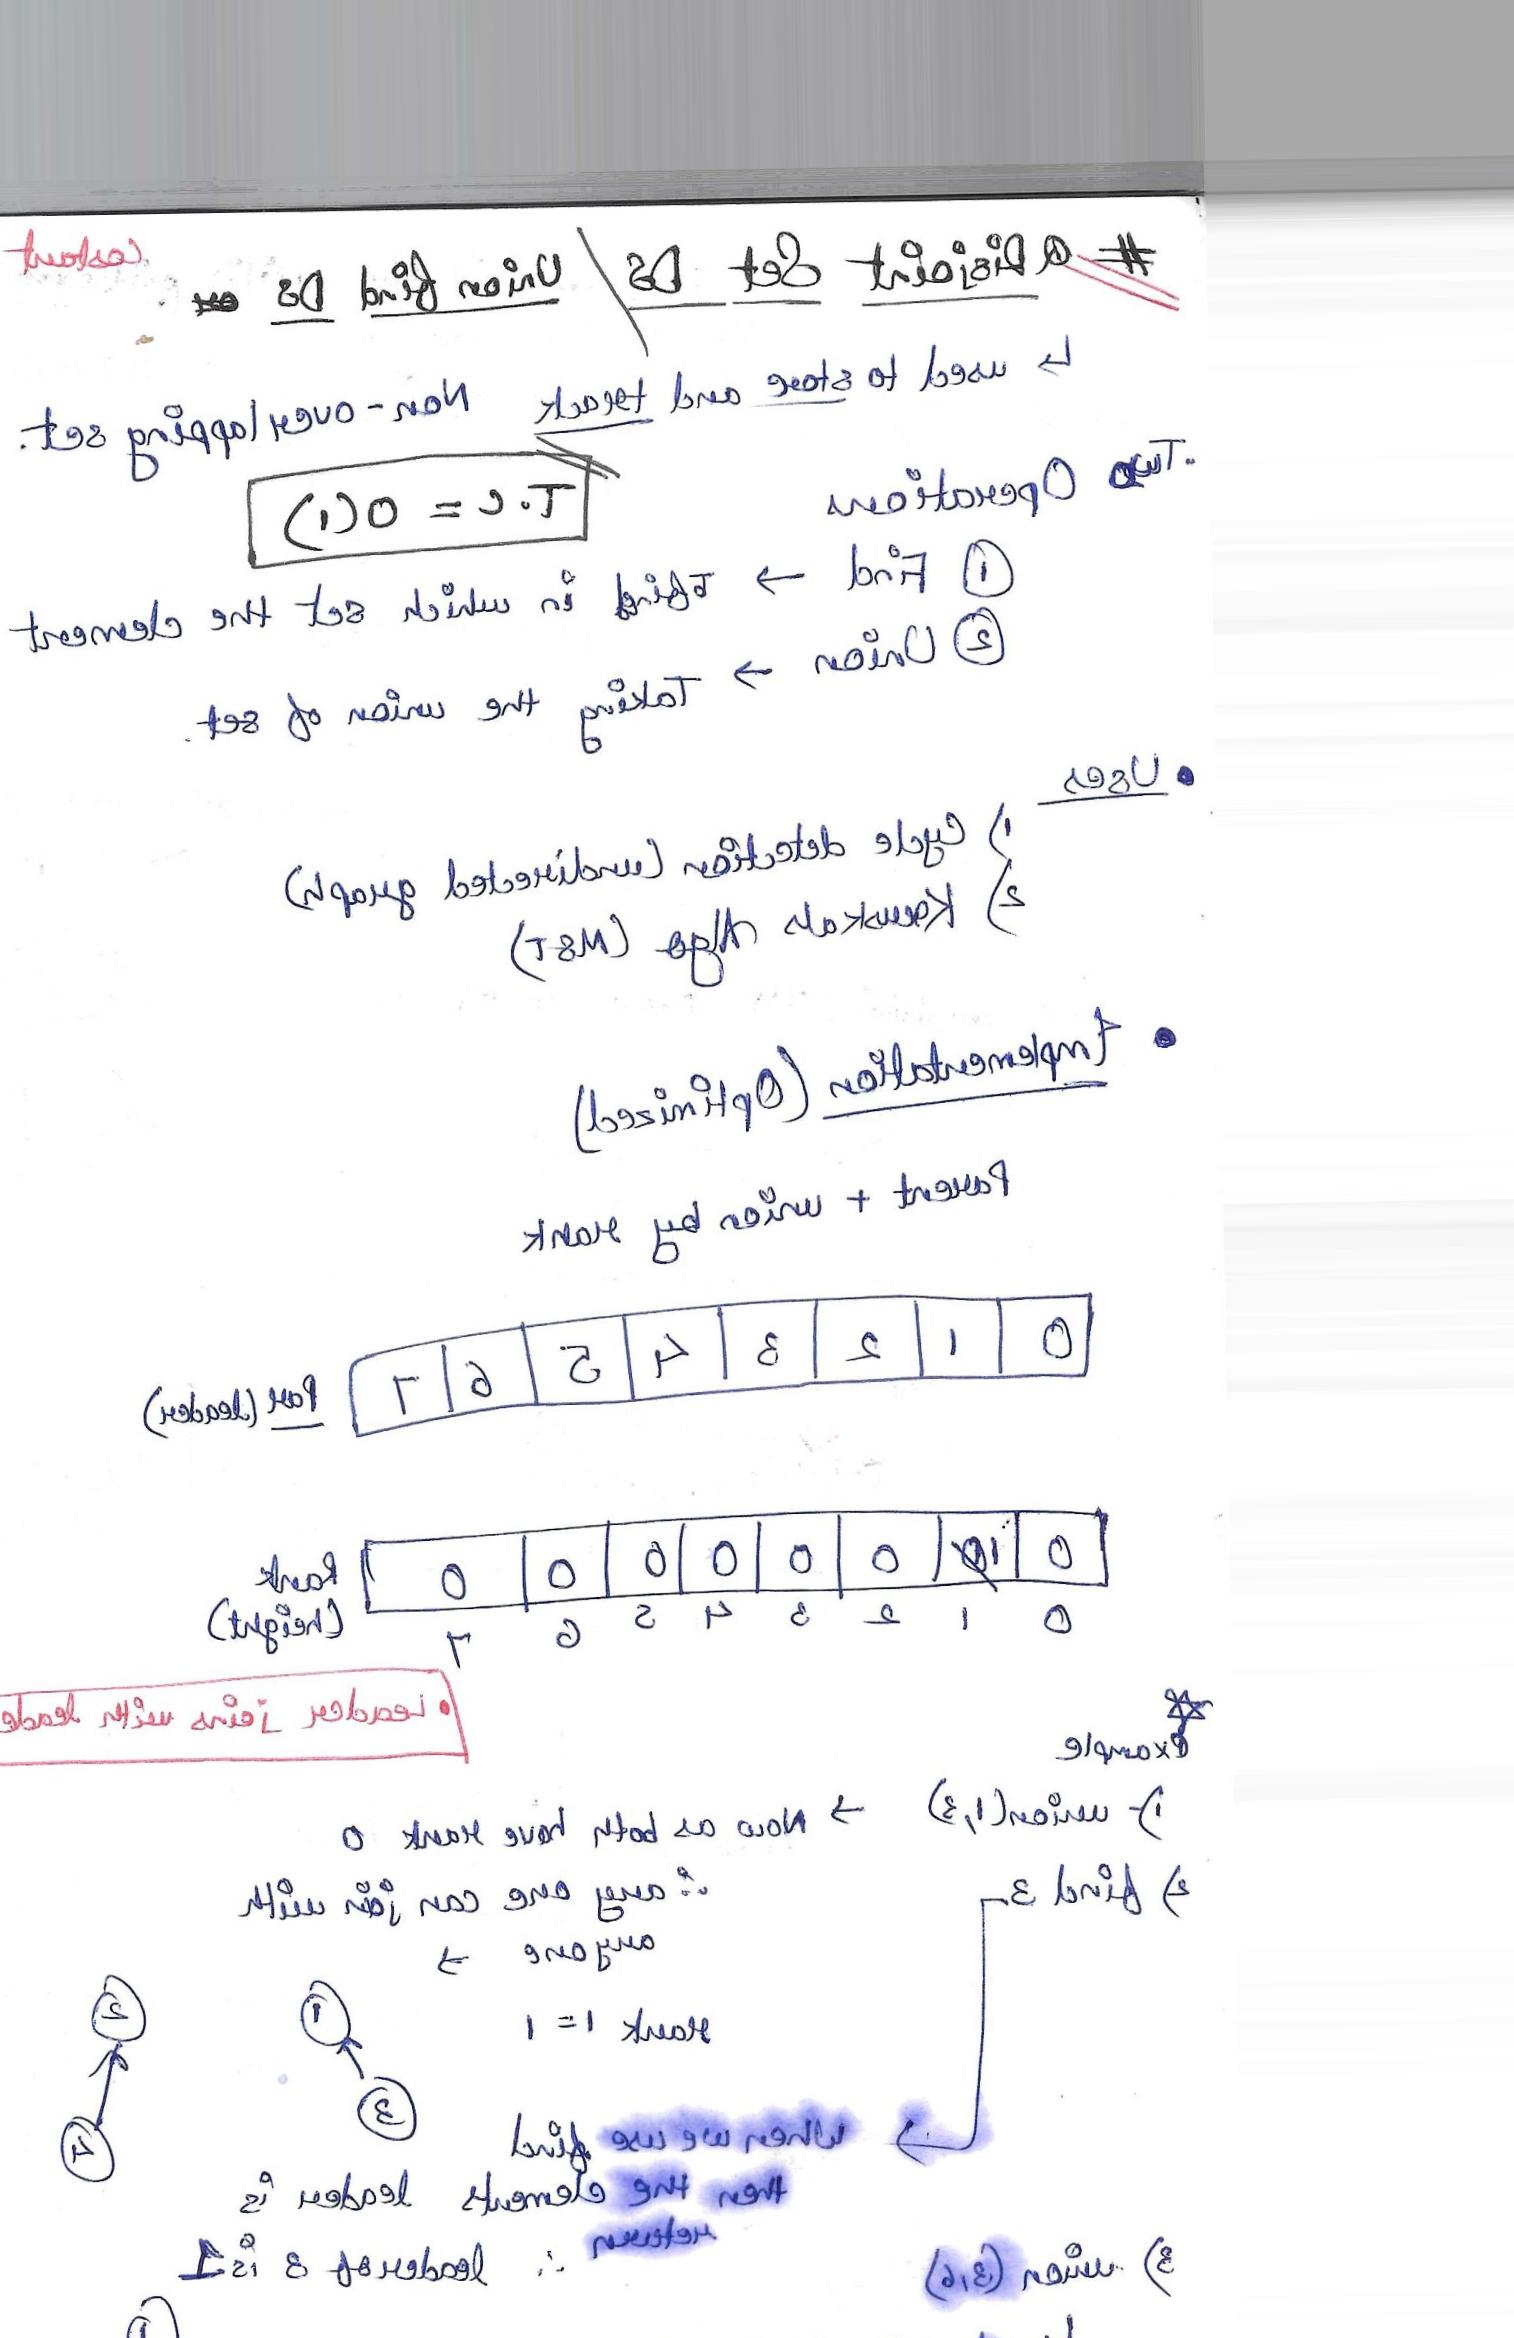 # Disjoint Set DS / Union find DS
Constant
↳ used to store and track Non-overlapping set.
Two Operations
T.C = O(1)
① Find → find in which set the element
② Union → Taking the union of set.
• Uses
1) Cycle detection (undirected graph)
2) Kruskals Algo (MST)
• Implementation (Optimized)
Parent + union by rank
0 1 2 3 4 5 6 7 Par (leader)
0 1 0 0 0 0 0 0 Rank
0 1 2 3 4 5 6 7 (height)
• Leader joins with leade
Example
1) union(1,3) → Now as both have rank 0
2) find 3 ∴ any one can join with
anyone →
rank 1 = 1
1 2
3 4
→ when we use find
then the elements leader is
return
∴ leader of 3 is 1
3) union (3,6)
1